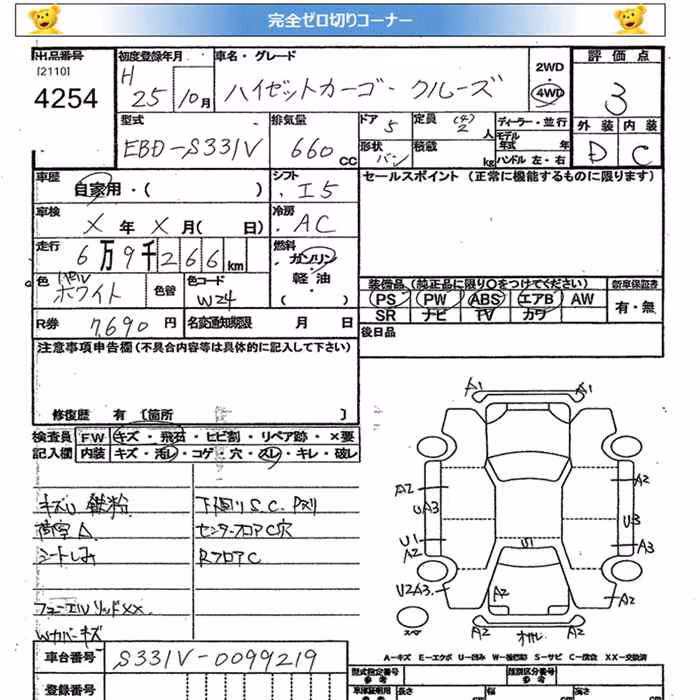 完全ゼロ切りコーナー
出品番号 初度登録年月 車名・グレード 評価点
[2110] 4254
H 25 10月 ハイゼットカーゴ・クルーズ
2WD
4WD
3
型式 排気量 ドア 5 定員 (4) 2 人 ディーラー・並行
外装 内装
モデル年式 年
EBD-S331V 660 CC 形状 バン 積載 kg ハンドル 左・右
D C
車歴 シフト セールスポイント (正常に機能するものに限ります)
自家用・( ) I5
車検 冷房
X 年 X 月( 日) AC
走行 燃料
6万9千266km ガソリン・軽油・( )
色 パール ホワイト 色替 色コード W24
装備品(純正品に限り〇をつけてください) 新車保証書
PS PW ABS エアB AW 有・無
SR ナビ TV カワ
R券 7,690 円 名変通知期限 月 日
後日品
注意事項申告欄 (不具合内容等は具体的に記入して下さい)
修復歴 有 [箇所 ]
検査員 FW キズ・飛石・ヒビ割・リペア跡・×要
記入欄 内装 キズ・汚レ・コゲ・穴・スレ・キレ・破レ
キズU 鉄粉 下廻りS.C. Pヌリ
荷室A センターフロアC穴
シートしみ RフロアC
フューエルリッドXX
Wカバーキズ
A1 A1
A2 A2
UA3 U3
U1 A2 U1 A3
U2A3 A2 A2
スペア A2 A2
A-キズ E-エクボ U-凹み W-補修跡 S-サビ C-腐食 XX-交換済
車台番号 S331V-0099219
型式指定番号 参考 類別区分番号 参考
登録番号
長さ 幅 高さ